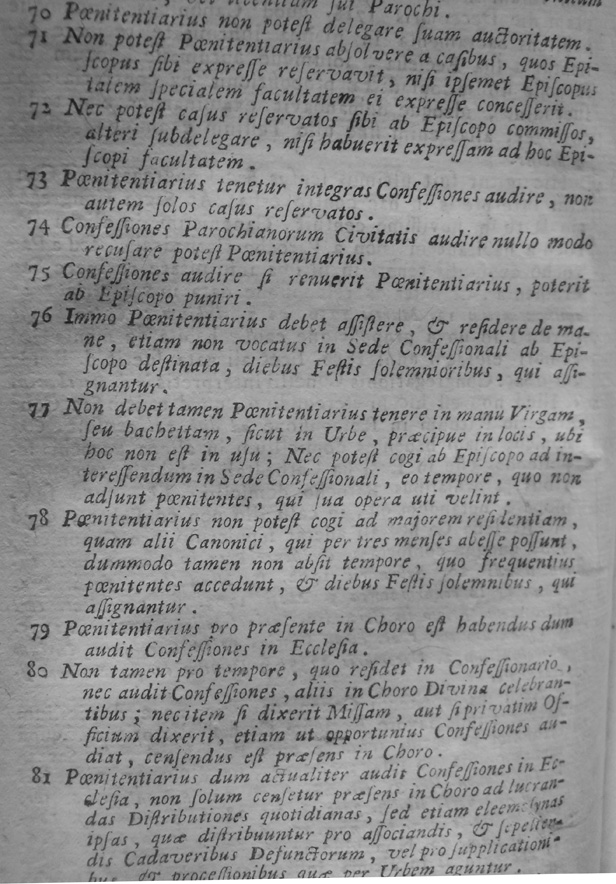 sui Parochi.
70 Pœnitentiarius non potest delegare suam auctoritatem.
71 Non potest Pœnitentiarius absolvere a casibus, quos Epi-
scopus sibi expresse reservavit, nisi ipsemet Episcopus
talem specialem facultatem ei expresse concesserit.
72 Nec potest casus reservatos sibi ab Episcopo commissos,
alteri subdelegare, nisi habuerit expressam ad hoc Epi-
scopi facultatem.
73 Pœnitentiarius tenetur integras Confessiones audire, non
autem solos casus reservatos.
74 Confessiones Parochianorum Civitatis audire nullo modo
recusare potest Pœnitentiarius.
75 Confessiones audire si renuerit Pœnitentiarius, poterit
ab Episcopo puniri.
76 Immo Pœnitentiarius debet assistere, & residere de ma-
ne, etiam non vocatus in Sede Confessionali ab Epi-
scopo destinata, diebus Festis solemnioribus, qui assi-
gnantur.
77 Non debet tamen Pœnitentiarius tenere in manu Virgam,
seu bachettam, sicut in Urbe, præcipue in locis, ubi
hoc non est in usu; Nec potest cogi ab Episcopo ad in-
teressendum in Sede Confessionali, eo tempore, quo non
adsunt pœnitentes, qui sua opera uti velint.
78 Pœnitentiarius non potest cogi ad majorem residentiam,
quam alii Canonici, qui per tres menses abesse possunt,
dummodo tamen non absit tempore, quo frequentius
pœnitentes accedunt, & diebus Festis solemnibus, qui
assignantur.
79 Pœnitentiarius pro præsente in Choro est habendus dum
audit Confessiones in Ecclesia.
80 Non tamen pro tempore, quo residet in Confessionario,
nec audit Confessiones, aliis in Choro Divina celebran-
tibus; nec item si dixerit Missam, aut si privatim Of-
ficium dixerit, etiam ut opportunius Confessiones au-
diat, censendus est præsens in Choro.
81 Pœnitentiarius dum actualiter audit Confessiones in Ec-
clesia, non solum censetur præsens in Choro ad lucran-
das Distributiones quotidianas, sed etiam eleemosynas
ipsas, quæ distribuuntur pro associandis, & sepelien-
dis Cadaveribus Defunctorum, vel pro supplicationi-
bus, & processionibus quæ per Urbem aguntur.